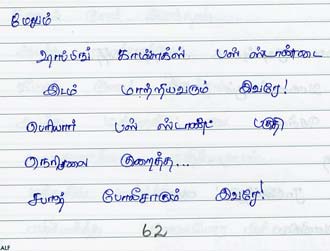 மேலும்
ஷாப்பிங் காம்ளக்ஸ் பஸ் ஸ்டாண்டை
இடம் மாற்றியவரும் இவரே!
பெரியார் பஸ் ஸ்டாண்ட் பகுதி
நெரிசலை குறைத்த...
சபாஷ் போலீசாரும் இவரே!
62
ALF